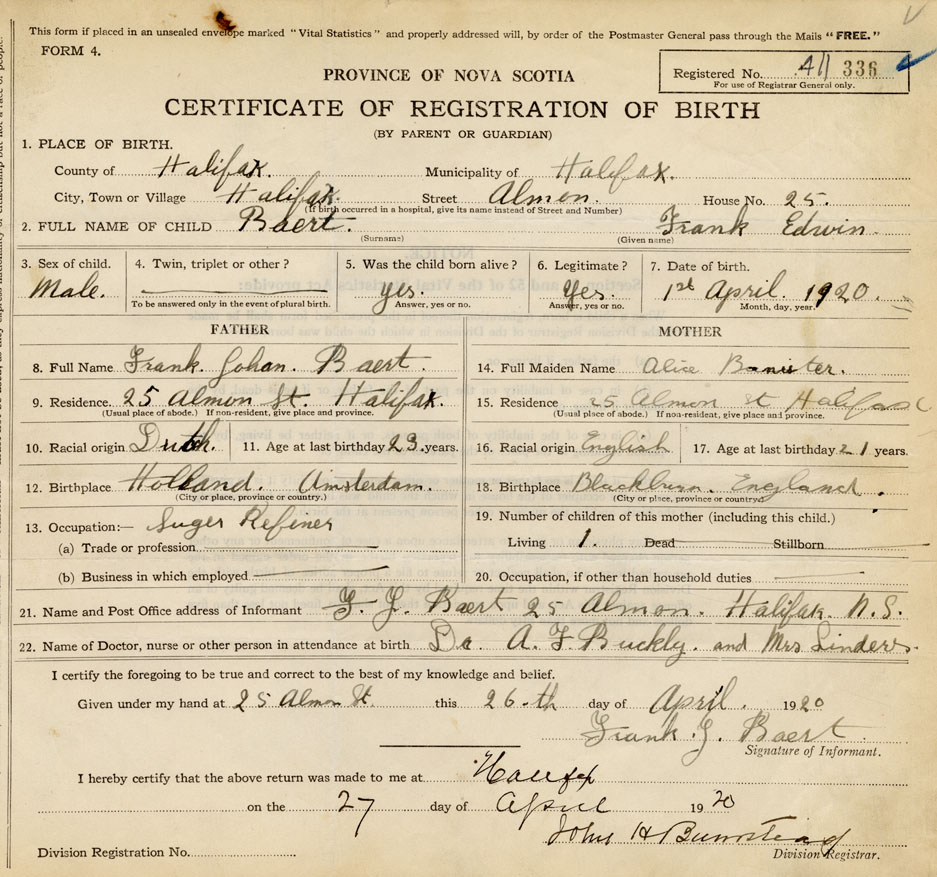 This form if placed in an unsealed envelope marked "Vital Statistics" and properly addressed will, by order of the Postmaster General pass through the Mails "FREE."
FORM 4.
Registered No. 411 336
For use of Registrar General only.
PROVINCE OF NOVA SCOTIA
CERTIFICATE OF REGISTRATION OF BIRTH
(BY PARENT OR GUARDIAN)
1. PLACE OF BIRTH.
County of Halifax. Municipality of Halifax.
City, Town or Village Halifax. Street Almon. House No. 25.
(If birth occurred in a hospital, give its name instead of Street and Number)
2. FULL NAME OF CHILD Baert. Frank Edwin.
(Surname) (Given name)
3. Sex of child. 4. Twin, triplet or other? 5. Was the child born alive? 6. Legitimate? 7. Date of birth.
Male. yes. Yes. 1st April 1920.
To be answered only in the event of plural birth. Answer, yes or no. Answer, yes or no. Month, day, year.
FATHER MOTHER
8. Full Name Frank Johan Baert. 14. Full Maiden Name Alice Banister.
9. Residence 25 Almon St. Halifax. 15. Residence 25 Almon st Halifax
(Usual place of abode.) If non-resident, give place and province. (Usual place of abode.) If non-resident, give place and province.
10. Racial origin Dutch. 11. Age at last birthday 23. years. 16. Racial origin English 17. Age at last birthday 21 years.
12. Birthplace Holland. Amsterdam. 18. Birthplace Blackburn. England.
(City or place, province or country.) (City or place, province or country.)
13. Occupation:— Suger Refiner 19. Number of children of this mother (including this child.)
(a) Trade or profession Living 1. Dead Stillborn
(b) Business in which employed 20. Occupation, if other than household duties
21. Name and Post Office address of Informant F. J. Baert 25 Almon. Halifax N.S.
22. Name of Doctor, nurse or other person in attendance at birth Dr. A. F. Buckly. and Mrs Linders.
I certify the foregoing to be true and correct to the best of my knowledge and belief.
Given under my hand at 25 Almon St this 26-th day of April. 1920
Frank J. Baert
Signature of Informant.
I hereby certify that the above return was made to me at Halifax
on the 27 day of April 1920
John H Bumstead
Division Registrar.
Division Registration No.